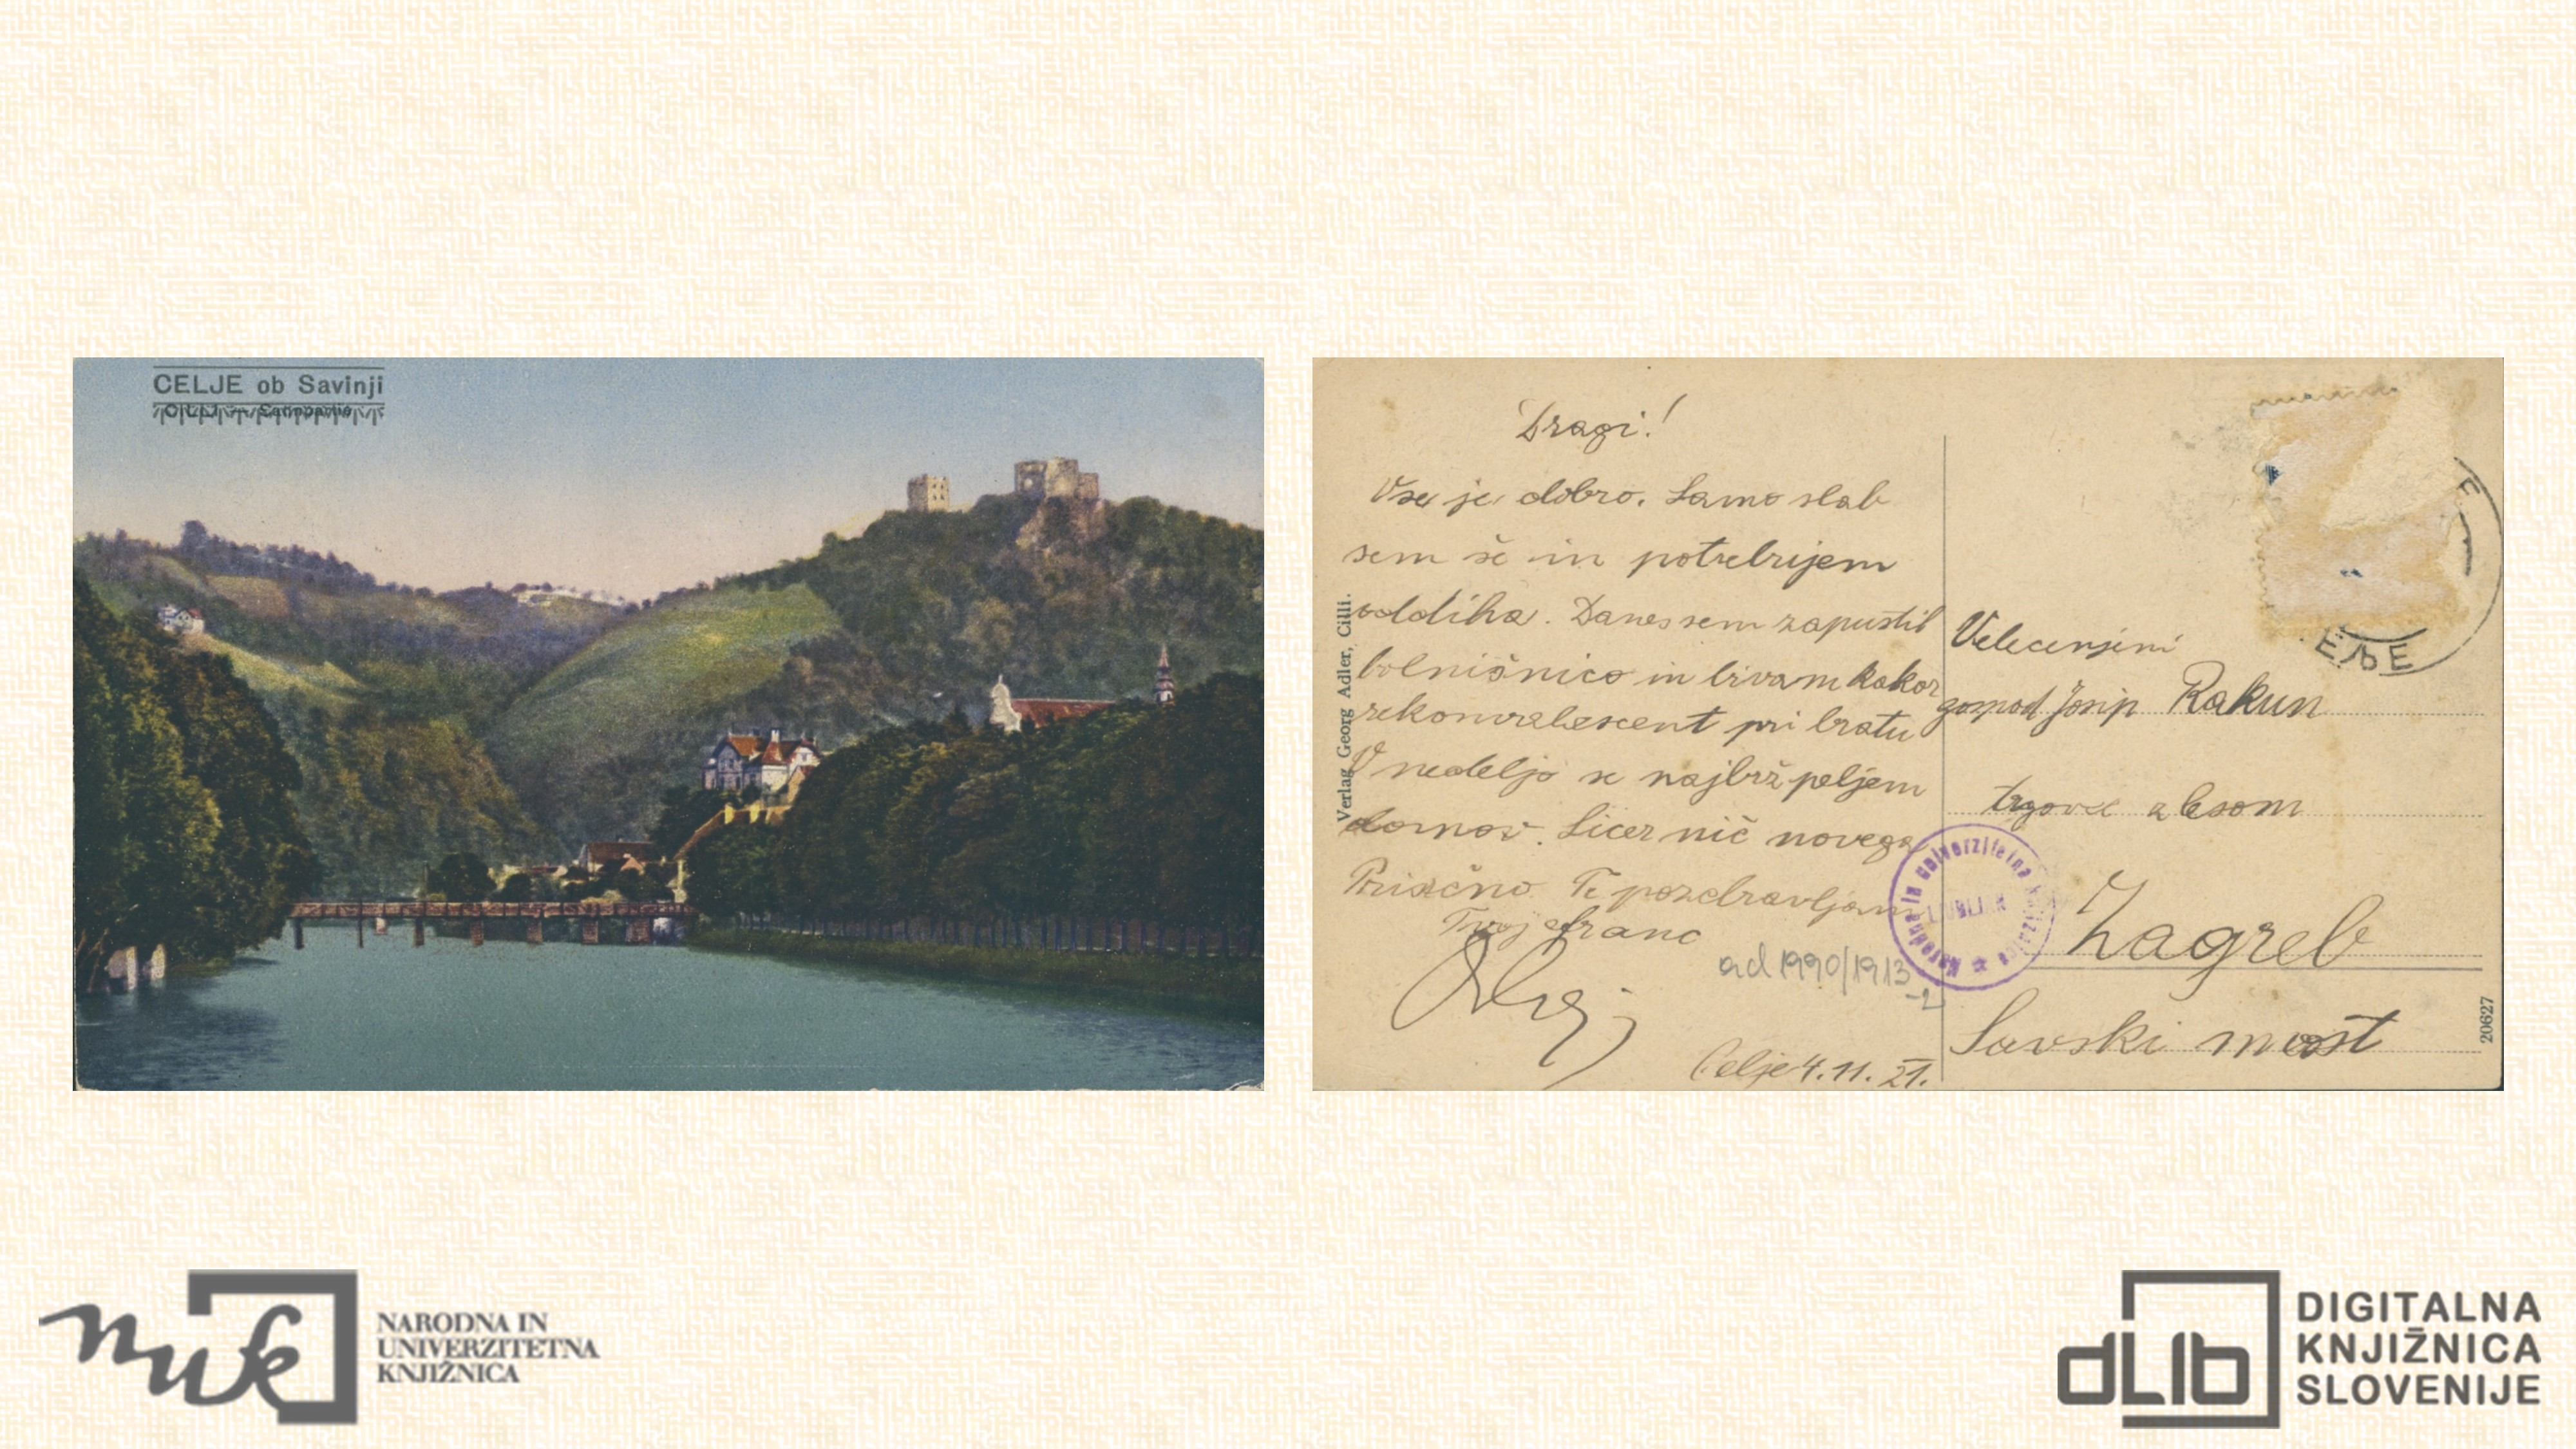 CELJE ob Savinji
Dragi!
Vse je dobro. Samo slab
sem še in potrebujem
oddiha. Danes sem zapustil
bolnišnico in bivam kakor
rekonvalescent pri bratu
V nedeljo se najbrž peljem
domov. Sicer nič novega
Prisrčno Te pozdravljam
Tvoj Franc
ad 1990/1913
-2
Celje 4.11.21.
Verlag Georg Adler, Cilli.
Velecenjeni
gospod Josip Rakun
trgovec z lesom
Zagreb
Savski most
Narodna in univerzitetna knjižnica
LJUBLJANA
20627
nuk
NARODNA IN
UNIVERZITETNA
KNJIŽNICA
dLib
DIGITALNA
KNJIŽNICA
SLOVENIJE